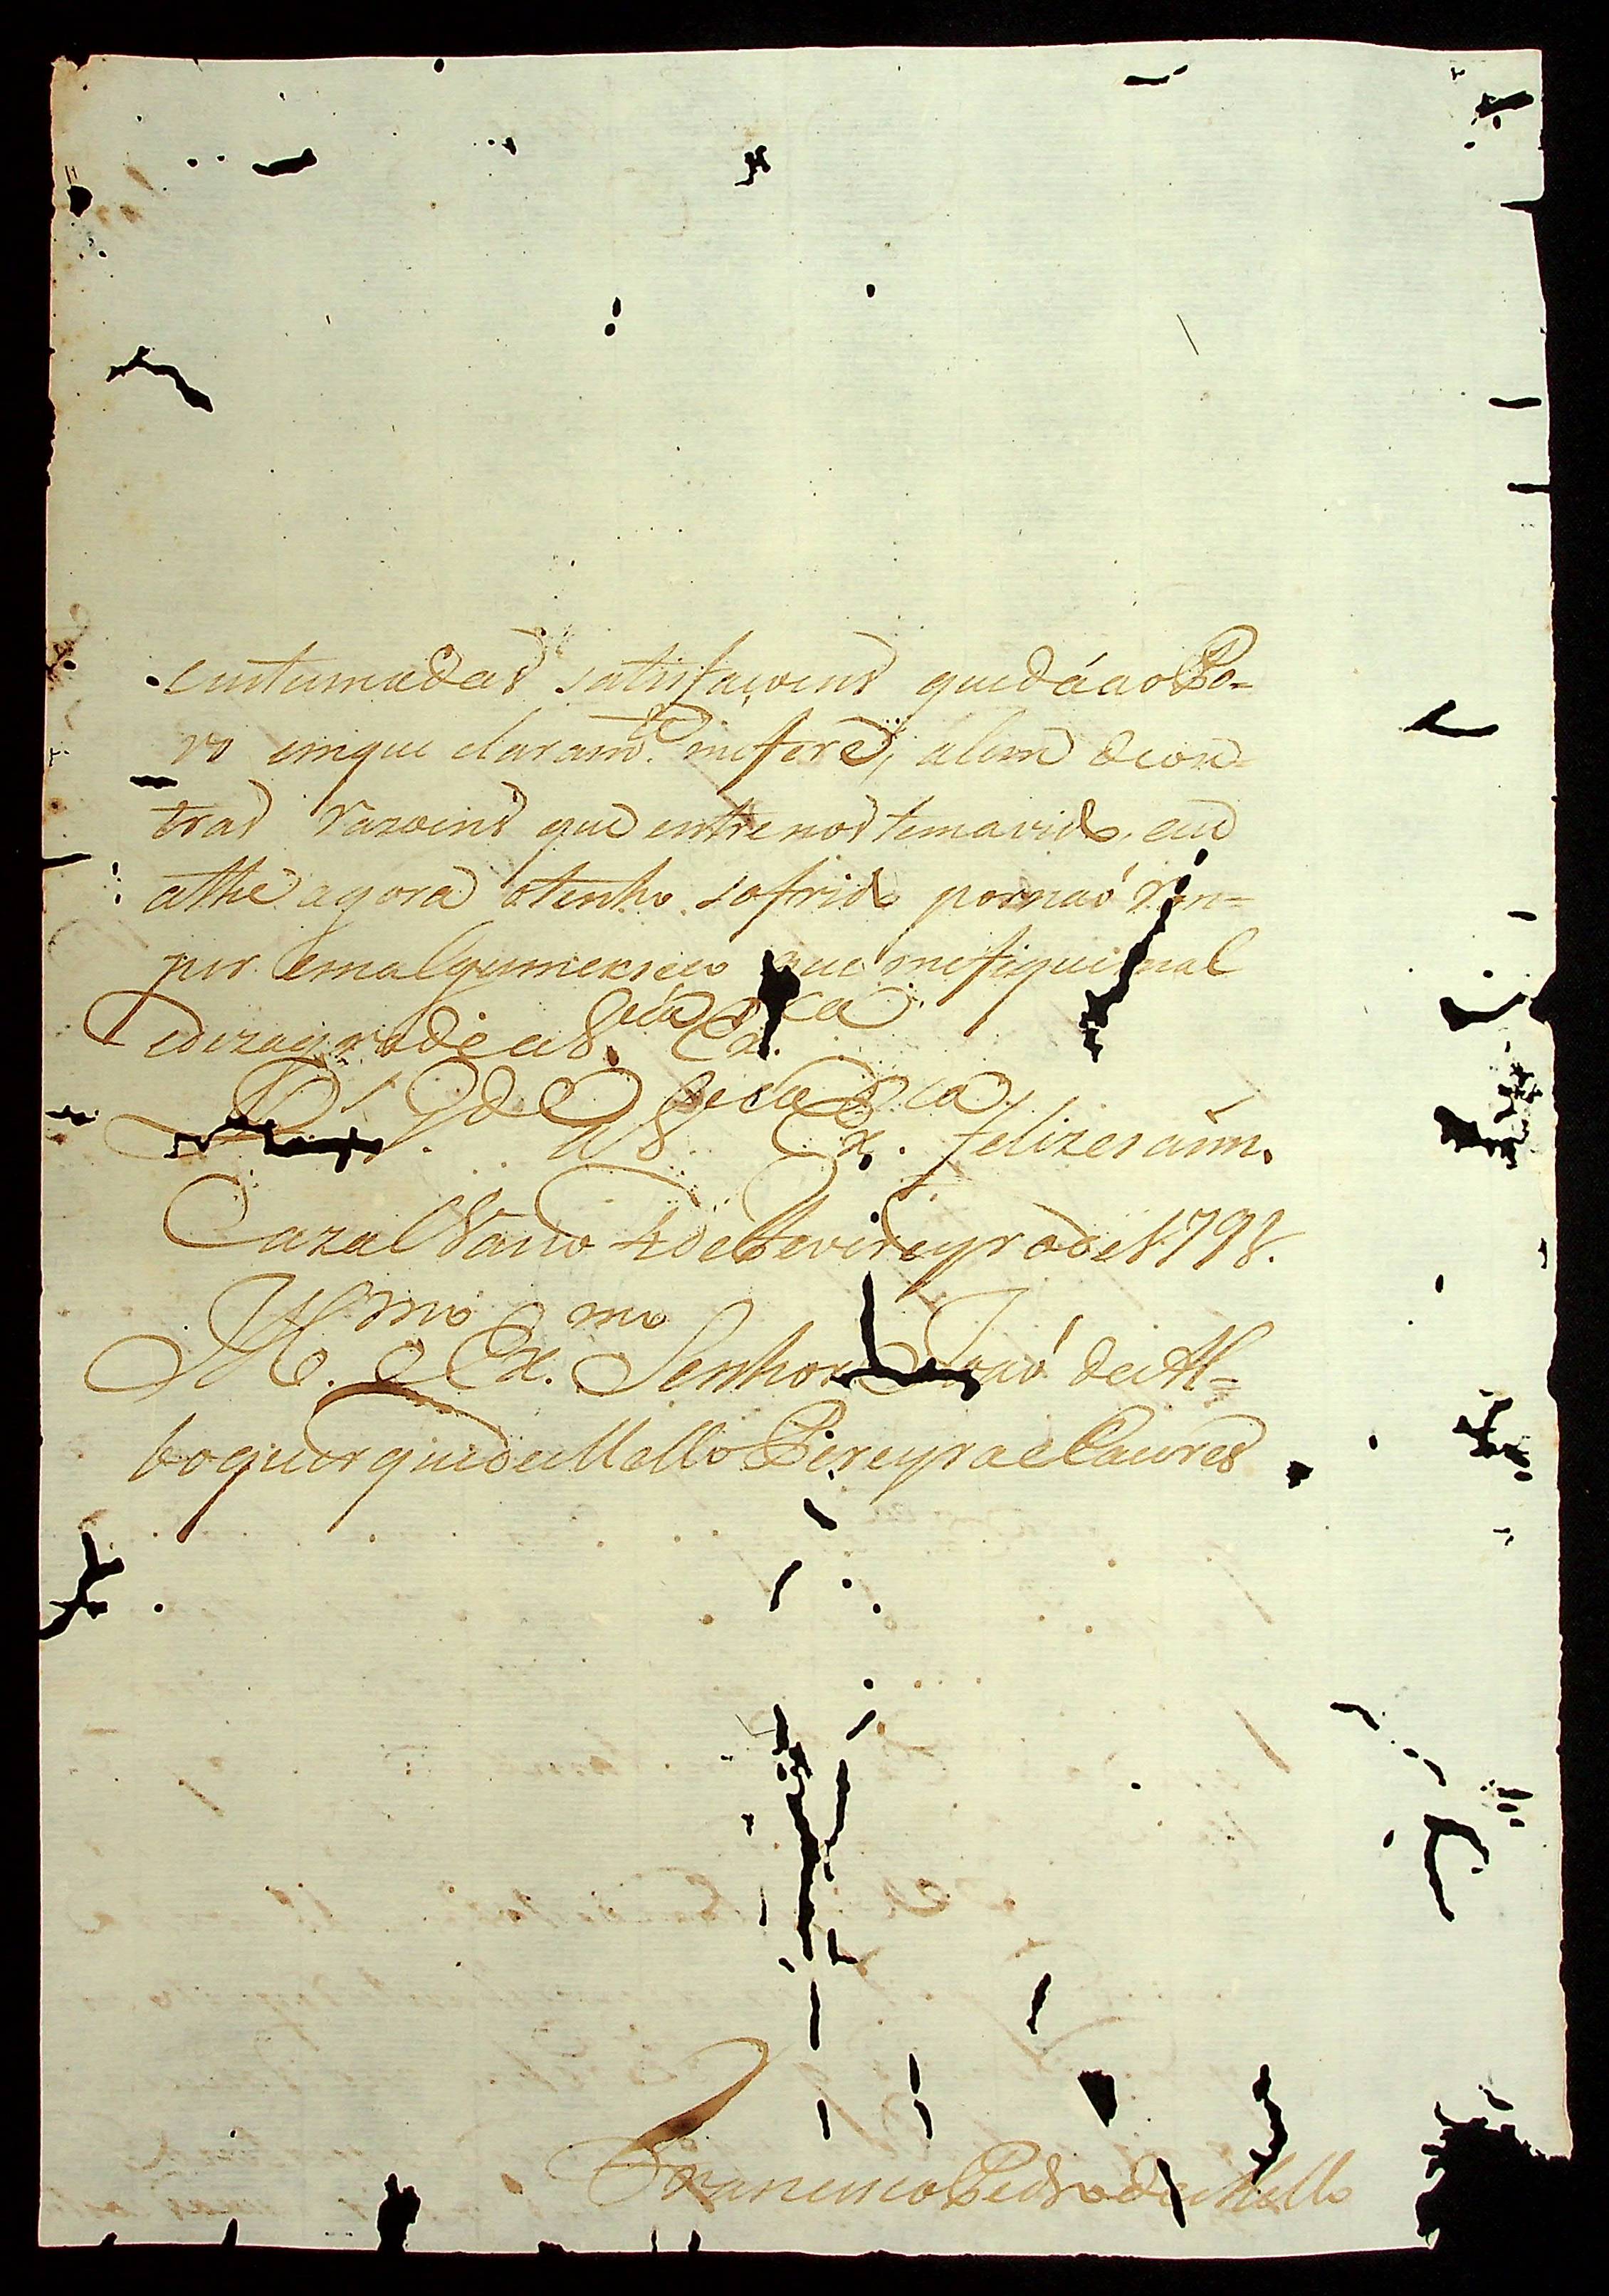 custumadas satisfaçoens que dá ao Po-
vo emque claram.te mefere, alem deou-
tras razoens que entrenos temavido, eeu
athe agora otenho sofrido pornaó Rom-
per emalgumexceço que mefique mal
edezagrade a V.a Ex.ca
D.s g.de a V.a Ex.ca felizes ann.
Cazal Vasco 4 de Fevereyro de 1798.
Ill.mo e Ex.mo Senhor Joaó de Al-
boquerque de Mello Pereyra e Caceres
Francisco Pedro de Mello